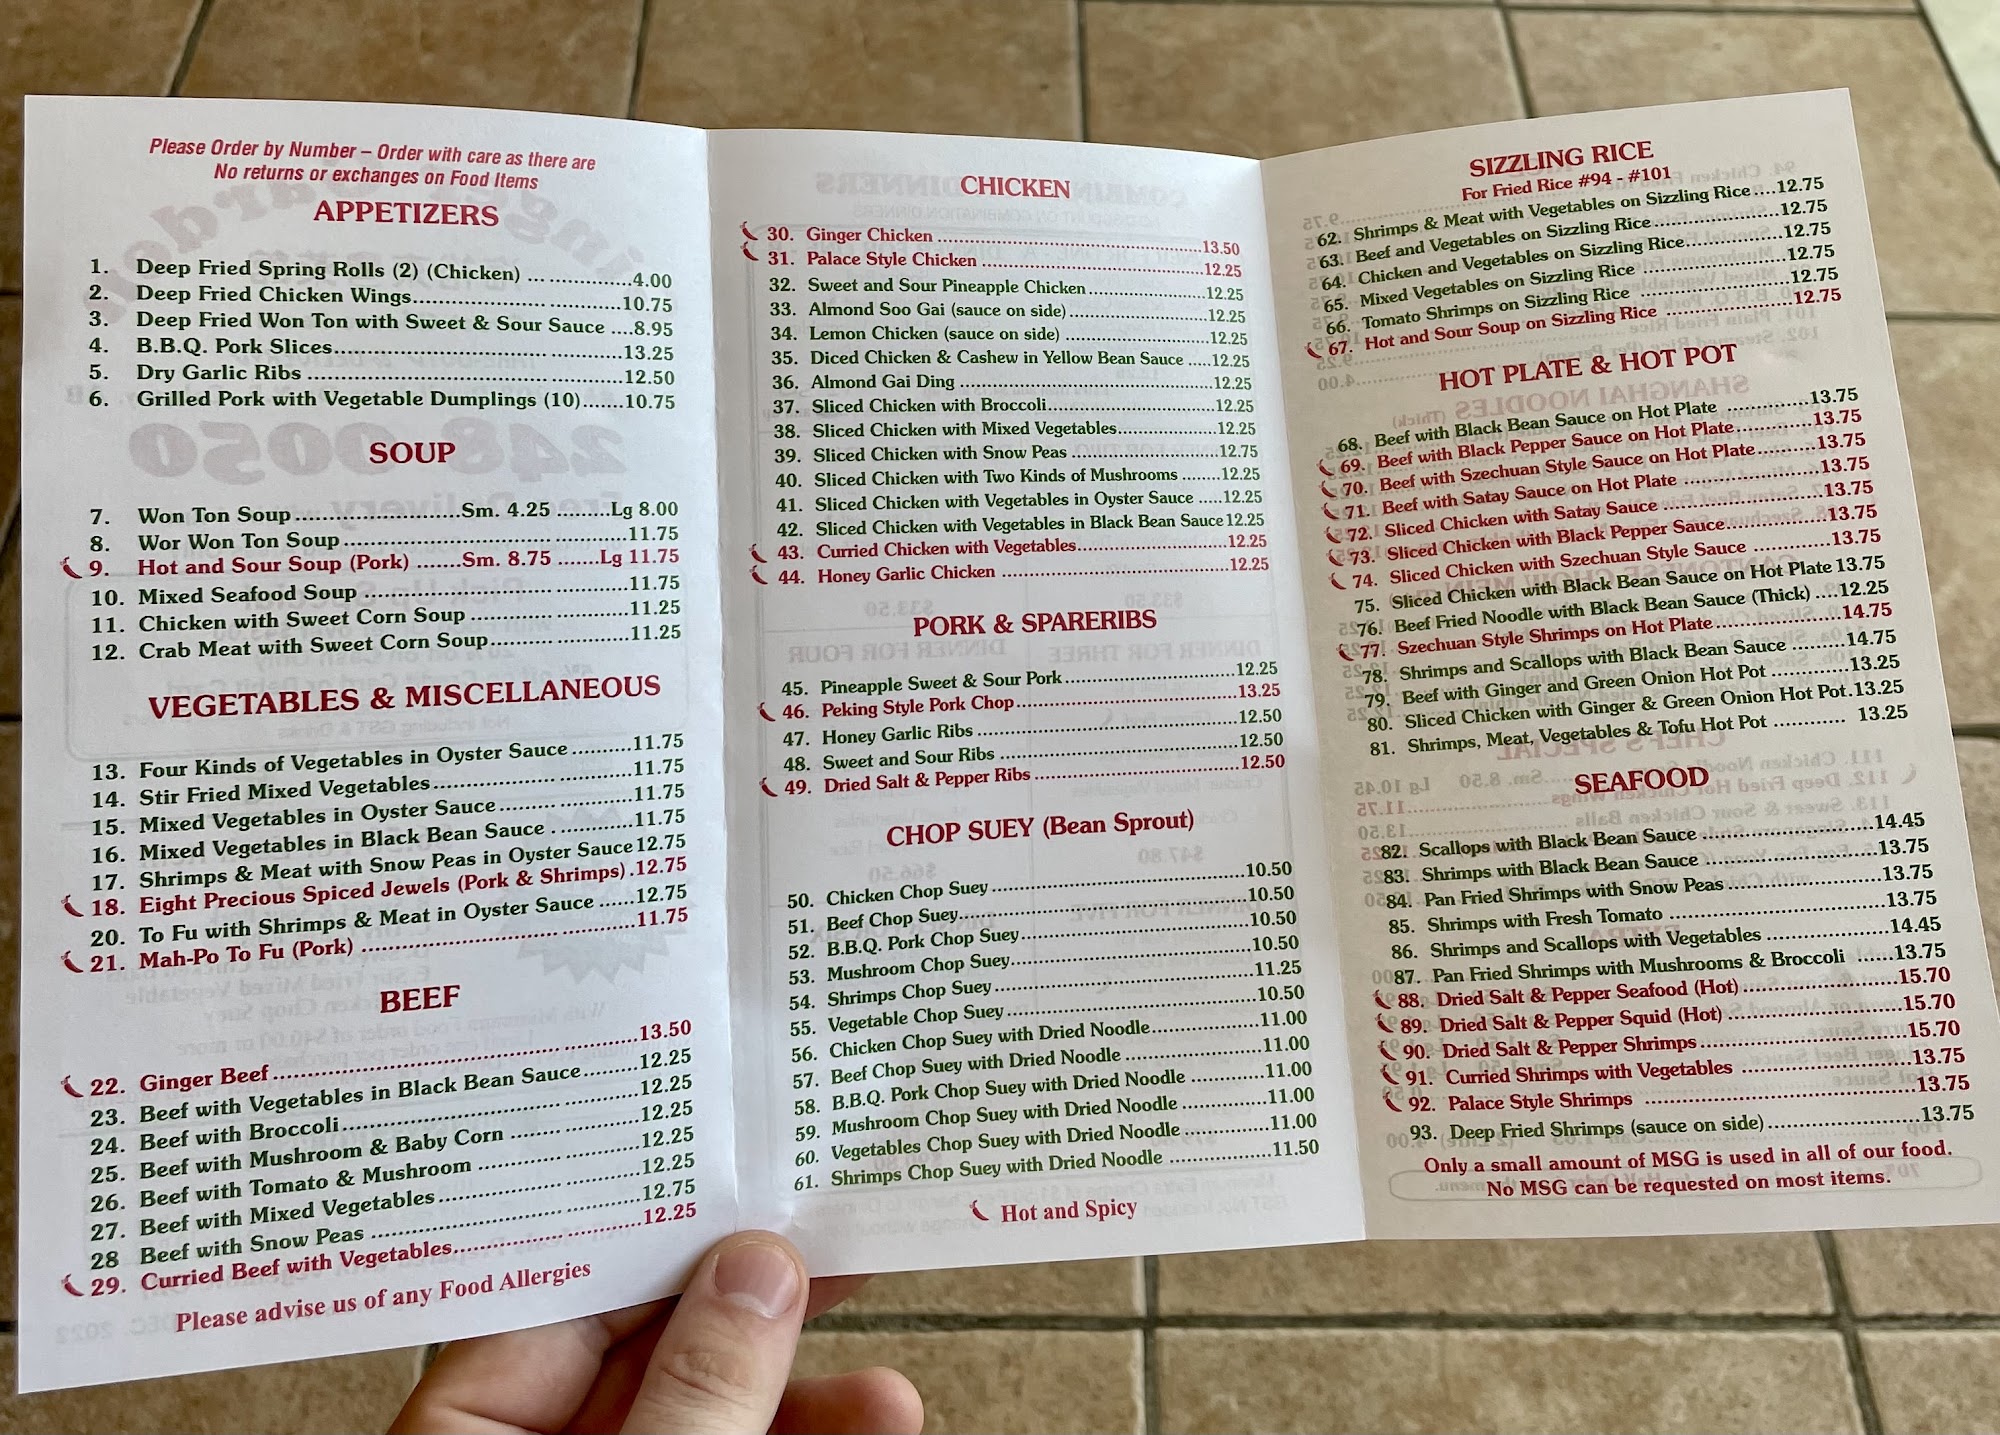 Please Order by Number – Order with care as there are
No returns or exchanges on Food Items
APPETIZERS
1. Deep Fried Spring Rolls (2) (Chicken) ... ..............4.00
2. Deep Fried Chicken Wings..................... ...........10.75
3. Deep Fried Won Ton with Sweet & Sour Sauce ....8.95
4. B.B.Q. Pork Slices................................. ...........13.25
5. Dry Garlic Ribs ..................................... ...........12.50
6. Grilled Pork with Vegetable Dumplings (10).......10.75
SOUP
7. Won Ton Soup .........................Sm. 4.25 ........Lg 8.00
8. Wor Won Ton Soup ................................ ............11.75
9. Hot and Sour Soup (Pork) .......Sm. 8.75 .......Lg 11.75
10. Mixed Seafood Soup ............................. ............11.75
11. Chicken with Sweet Corn Soup ............. ............11.25
12. Crab Meat with Sweet Corn Soup.......... ............11.25
VEGETABLES & MISCELLANEOUS
13. Four Kinds of Vegetables in Oyster Sauce ..........11.75
14. Stir Fried Mixed Vegetables.................. ............11.75
15. Mixed Vegetables in Oyster Sauce......... ............11.75
16. Mixed Vegetables in Black Bean Sauce . ............11.75
17. Shrimps & Meat with Snow Peas in Oyster Sauce 12.75
18. Eight Precious Spiced Jewels (Pork & Shrimps) .12.75
20. To Fu with Shrimps & Meat in Oyster Sauce ......12.75
21. Mah-Po To Fu (Pork) ............................. ............11.75
BEEF
22. Ginger Beef ............................................ ............13.50
23. Beef with Vegetables in Black Bean Sauce.........12.25
24. Beef with Broccoli................................. ............12.25
25. Beef with Mushroom & Baby Corn ........ ............12.25
26. Beef with Tomato & Mushroom ............. ............12.25
27. Beef with Mixed Vegetables................... ............12.25
28 Beef with Snow Peas ............................. ............12.75
29. Curried Beef with Vegetables................. ............12.25
Please advise us of any Food Allergies
CHICKEN
30. Ginger Chicken ............................................13.50
31. Palace Style Chicken ....................................12.25
32. Sweet and Sour Pineapple Chicken....................12.25
33. Almond Soo Gai (sauce on side)........................12.25
34. Lemon Chicken (sauce on side) ........................12.25
35. Diced Chicken & Cashew in Yellow Bean Sauce ....12.25
36. Almond Gai Ding ............................................12.25
37. Sliced Chicken with Broccoli.............................12.25
38. Sliced Chicken with Mixed Vegetables.................12.25
39. Sliced Chicken with Snow Peas .........................12.75
40. Sliced Chicken with Two Kinds of Mushrooms .......12.25
41. Sliced Chicken with Vegetables in Oyster Sauce .....12.25
42. Sliced Chicken with Vegetables in Black Bean Sauce 12.25
43. Curried Chicken with Vegetables.........................12.25
44. Honey Garlic Chicken ......................................12.25
PORK & SPARERIBS
45. Pineapple Sweet & Sour Pork............................12.25
46. Peking Style Pork Chop....................................13.25
47. Honey Garlic Ribs ...........................................12.50
48. Sweet and Sour Ribs ........................................12.50
49. Dried Salt & Pepper Ribs ..................................12.50
CHOP SUEY (Bean Sprout)
50. Chicken Chop Suey .........................................10.50
51. Beef Chop Suey...............................................10.50
52. B.B.Q. Pork Chop Suey.....................................10.50
53. Mushroom Chop Suey.......................................10.50
54. Shrimps Chop Suey .........................................11.25
55. Vegetable Chop Suey .......................................10.50
56. Chicken Chop Suey with Dried Noodle..................11.00
57. Beef Chop Suey with Dried Noodle .....................11.00
58. B.B.Q. Pork Chop Suey with Dried Noodle .............11.00
59. Mushroom Chop Suey with Dried Noodle ...............11.00
60. Vegetables Chop Suey with Dried Noodle ..............11.00
61. Shrimps Chop Suey with Dried Noodle .................11.50
Hot and Spicy
SIZZLING RICE
For Fried Rice #94 - #101
62. Shrimps & Meat with Vegetables on Sizzling Rice....12.75
63. Beef and Vegetables on Sizzling Rice...................12.75
64. Chicken and Vegetables on Sizzling Rice...............12.75
65. Mixed Vegetables on Sizzling Rice ......................12.75
66. Tomato Shrimps on Sizzling Rice ........................12.75
67. Hot and Sour Soup on Sizzling Rice .....................12.75
HOT PLATE & HOT POT
68. Beef with Black Bean Sauce on Hot Plate .............13.75
69. Beef with Black Pepper Sauce on Hot Plate............13.75
70. Beef with Szechuan Style Sauce on Hot Plate.........13.75
71. Beef with Satay Sauce on Hot Plate ....................13.75
72. Sliced Chicken with Satay Sauce ........................13.75
73. Sliced Chicken with Black Pepper Sauce...............13.75
74. Sliced Chicken with Szechuan Style Sauce ............13.75
75. Sliced Chicken with Black Bean Sauce on Hot Plate 13.75
76. Beef Fried Noodle with Black Bean Sauce (Thick) ....12.25
77. Szechuan Style Shrimps on Hot Plate...................14.75
78. Shrimps and Scallops with Black Bean Sauce .........14.75
79. Beef with Ginger and Green Onion Hot Pot ............13.25
80. Sliced Chicken with Ginger & Green Onion Hot Pot.13.25
81. Shrimps, Meat, Vegetables & Tofu Hot Pot ........... 13.25
SEAFOOD
82. Scallops with Black Bean Sauce .........................14.45
83. Shrimps with Black Bean Sauce .........................13.75
84. Pan Fried Shrimps with Snow Peas......................13.75
85. Shrimps with Fresh Tomato ..............................13.75
86. Shrimps and Scallops with Vegetables .................14.45
87. Pan Fried Shrimps with Mushrooms & Broccoli ......13.75
88. Dried Salt & Pepper Seafood (Hot).......................15.70
89. Dried Salt & Pepper Squid (Hot) .........................15.70
90. Dried Salt & Pepper Shrimps..............................15.70
91. Curried Shrimps with Vegetables ........................13.75
92. Palace Style Shrimps .......................................13.75
93. Deep Fried Shrimps (sauce on side).....................13.75
Only a small amount of MSG is used in all of our food.
No MSG can be requested on most items.